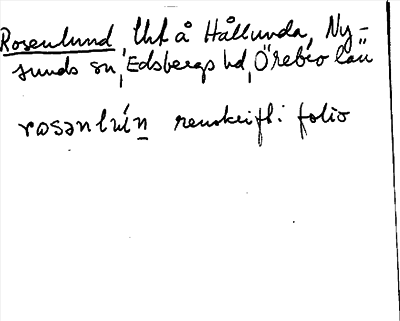 Rosenlund, Utt å Hållunda, Ny-
sunds sn, Edsbergs hd, Örebro län
rωsənlún renskrift i folio